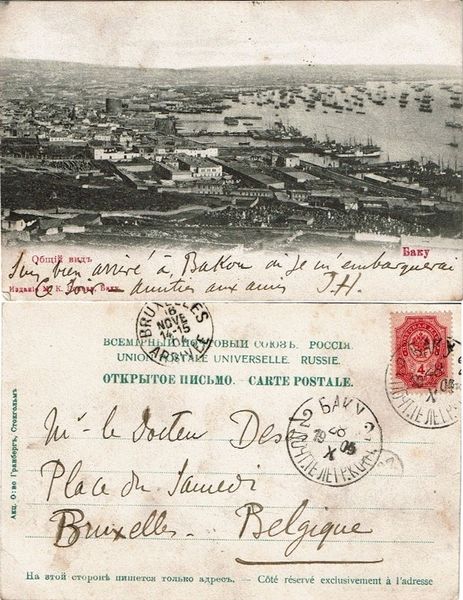 Общій видъ.
Баку
Suis bien arrivé à Bakou où je m'embarquerai
Изданіе М. К. Баку.
ce soir amitiés aux amis J.H.
BRUXELLES
6
NOVE
14-15
ARRIVÉE
ВСЕМІРНЫЙ ПОЧТОВЫЙ СОЮЗЪ. РОССІЯ.
UNION POSTALE UNIVERSELLE. RUSSIE.
ОТКРЫТОЕ ПИСЬМО. – CARTE POSTALE.
4
БАКУ
2 2
19 05
X
Mr le Docteur Des
Place du Samedi
Bruxelles. Belgique
Акц. О-во Гранбергъ, Стокгольмъ
На этой сторонѣ пишется только адресъ. – Côté réservé exclusivement à l'adresse